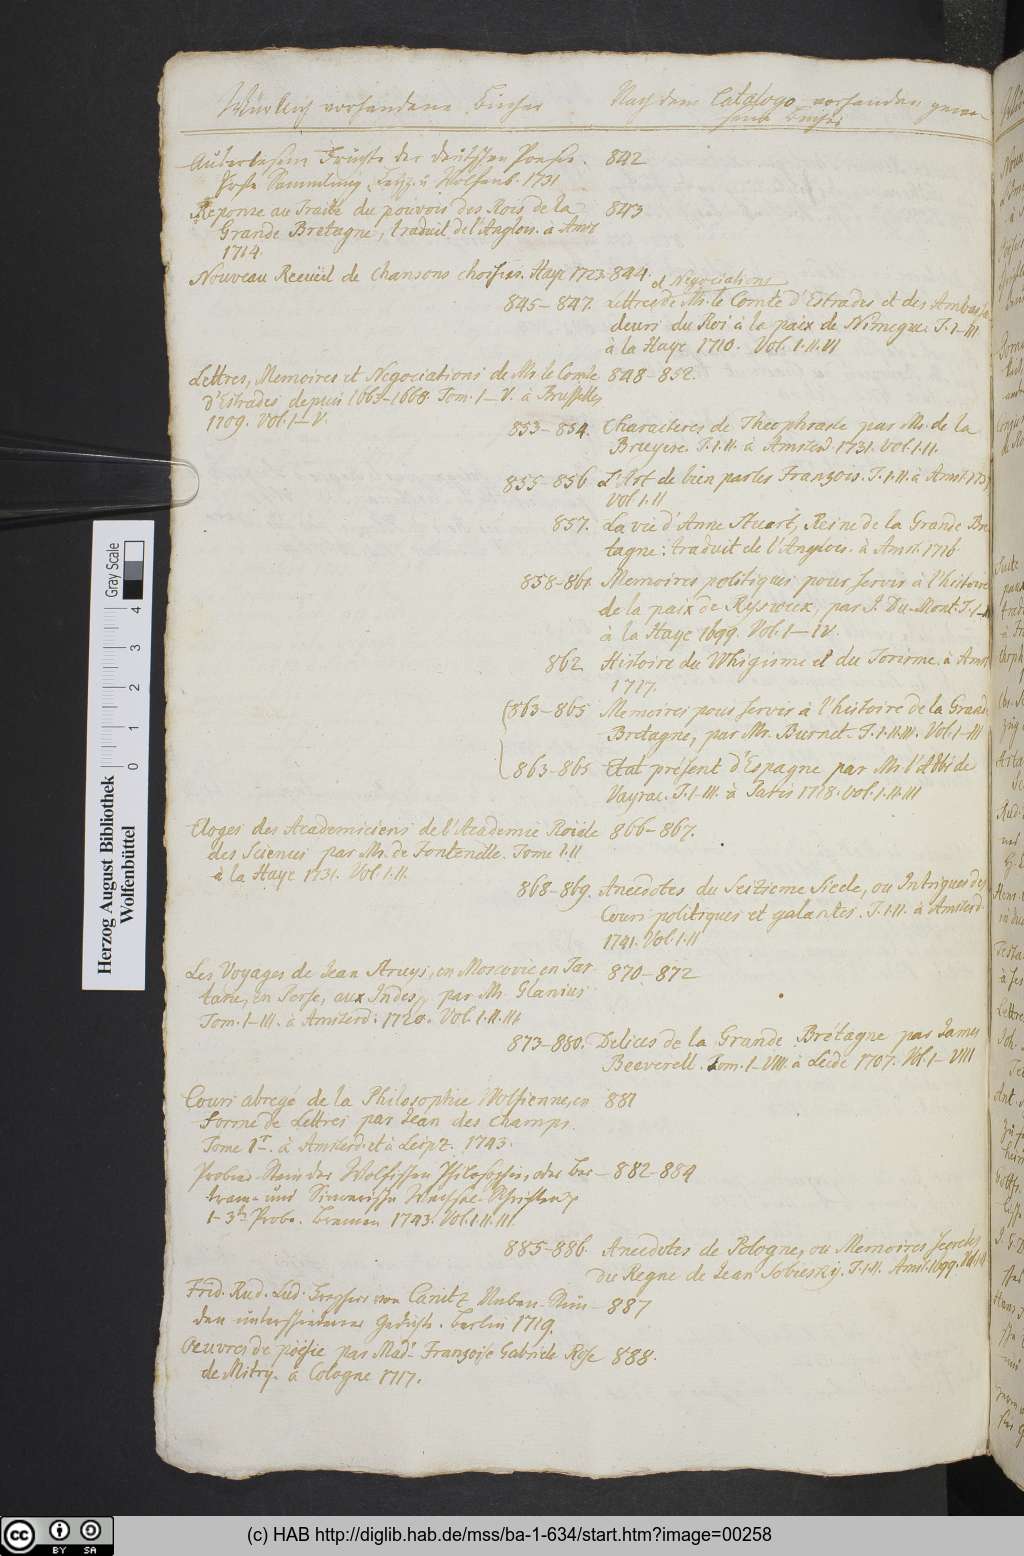 Würklich vorhandene Bücher
Nach dem Catalogo vorhanden gewe-
sene Bücher
Auserlesene Früchte der deutschen Poesie. 842
Erste Sammlung. Leipz. u Wolfenb. 1731
Reponse au Traité du pouvois des Rois de la 843
Grande Bretagne, traduit de l'Anglois. a Amst
1714.
Nouveau Recueil de Chansons choisies. Haye 1723. 844.
et Negociations
845–847. Lettres de Mr. le Comte d'Estrades et des Ambassa
deurs du Roi à la paix de Nimegue. T. I–III
à la Haye 1710. Vol. I. II. III
Lettres, Memoires et Negociations de Mr le Comte 848–852.
d'Estrades depuis 1663–1668. Tom. I–V. a Brusselles
1709. Vol. I–V.
853–854. Characteres de Theophraste par Mr. de la
Bruyere. T. I. II. à Amsterd. 1731. Vol. I. II.
855–856 L'Art de bien parler François. T. I. II. à Amst.
Vol. I. II
857. La vie d'Anne Stuart, Reine de la Grande Bre
tagne: traduit de l'Anglois. à Amst. 1716
858–861. Memoires politiques pour servir à l'histoire
de la paix de Ryswick, par J. Du-Mont. T. I–
à la Haye 1699. Vol. I–IV.
862 Histoire du Whigisme et du Torisme. à Amst
1717.
863–865 Memoires pour servir à l'histoire de la Grande
Bretagne, par Mr. Burnet. T. I. II. III. Vol. I–III
863–865 Etat présent d'Espagne par Mr l'Abbé de
Vayrac. T. I–III. à Paris 1718. Vol. I. II. III
Eloges des Academiciens de l'Academie Roiale 866–867.
des Sciences par Mr. de Fontenelle. Tome I. II
à la Haye 1731. Vol. I. II.
868–869. Anecdotes du Seizieme Siecle, ou Intrigues des
Cours politiques et galantes. T. I. II. à Amsterd.
1741. Vol. I. II
Les Voyages de Jean Struys, en Moscovie en Tar- 870–872
tarie, en Perse, aux Indes, par Mr. Glanius
Tom. I–III. à Amsterd. 1720. Vol. I. II. III
873–880. Delices de la Grande Brétagne par James
Beeverell. Tom. I–VIII. à Leide 1707. Vol. I–VIII
Cours abregé de la Philosophie Wolfienne, en 881
forme de Lettres par Jean des Champs.
Tome Ir. à Amsterd. et à Leipz. 1743.
Probier-Stein der Wolfischen Philosophie, oder Ber– 882–884
tram- und Wechsel-Schriften
1–3te Probe. Bremen 1743. Vol. I. II. III.
885–886. Anecdotes de Pologne, ou Memoires secretes
du Regne de Jean Sobiesky. T. I. II. Amst. 1699. Vol. I. II
Frid. Rud. Lud. Freyherr von Canitz Neben-Stun– 887
den unterschiedener Gedichte. Berlin 1719.
Oeuvres de poësie par Made. Françoise Gabriele Rose 888.
de Mitry. à Cologne 1717.
Herzog August Bibliothek
Wolfenbüttel
Gray Scale
0 1 2 3 4
cc BY SA
(c) HAB http://diglib.hab.de/mss/ba-1-634/start.htm?image=00258